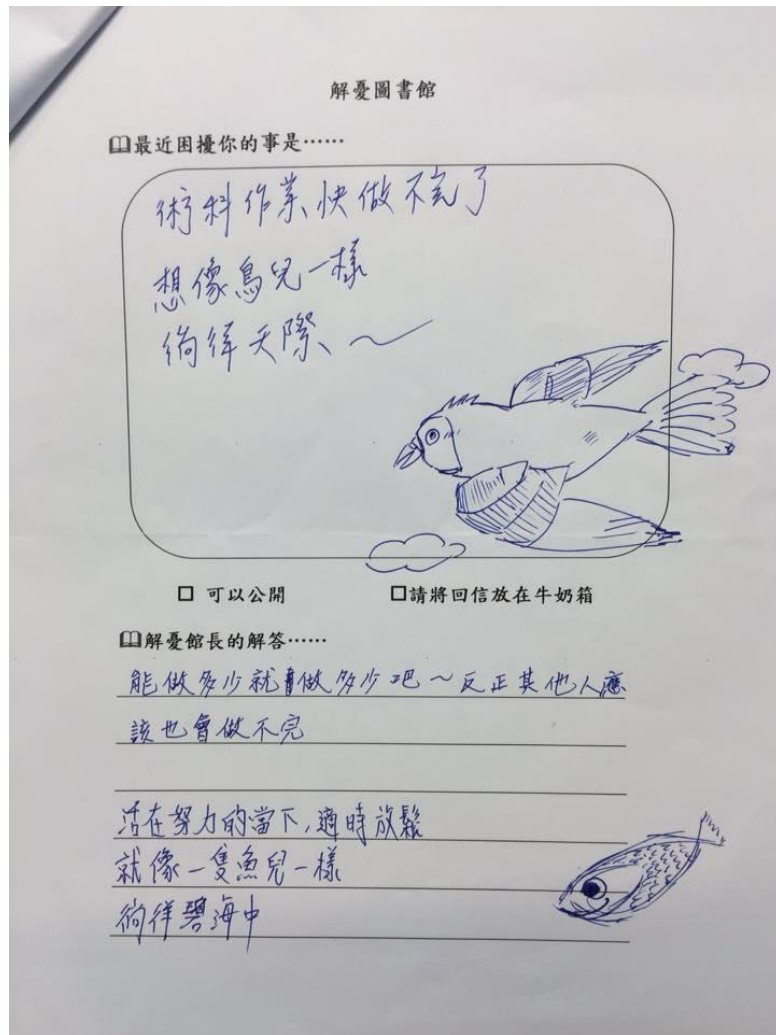 解憂圖書館
最近困擾你的事是……
術科作業快做不完了
想像鳥兒一樣
徜徉天際～
□ 可以公開 □請將回信放在牛奶箱
解憂館長的解答……
能做多少就做多少吧～反正其他人應
該也會做不完
活在努力的當下,適時放鬆
就像一隻魚兒一樣
徜徉碧海中